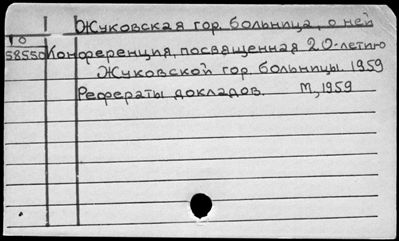 Жуковская гор. больница, о ней
10
58550 Конференция, посвященная 20-летию
Жуковской гор. больницы. 1959
Рефераты докладов. М, 1959